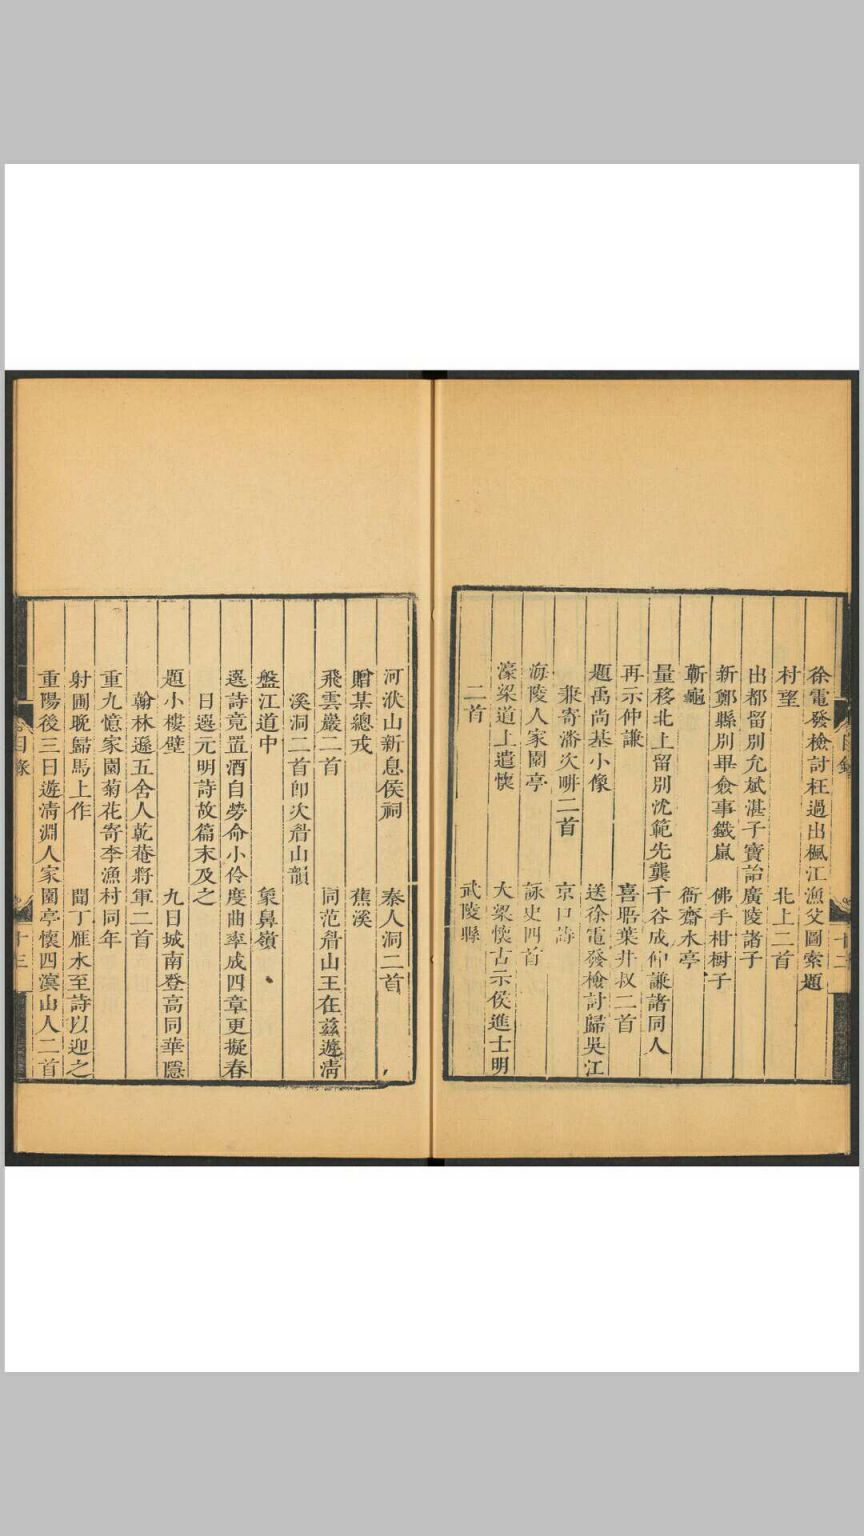 徐電發檢討枉過出楓江漁父圖索題
村望　北上二首
出都留別允斌湛子寶詒廣陵諸子
新鄭縣別畢僉事鐵嵐　佛手柑樹子
蘄龜　衙齋水亭
量移北上留別沈範先龔千谷成仰謙諸同人
再示仲謙　喜晤葉井叔二首
題禹尚基小像　送徐電發檢討歸吳江
兼寄潘次耕二首　京口詩
海陵人家園亭　詠史四首
濠梁道上遣懷　大梁懷古示侯進士明
二首　武陵縣
目錄　十二
河洑山新息侯祠　秦人洞二首
贈某總戎　蕉溪
飛雲巖二首　同范眢山王在茲遊清
溪洞二首即次眢山韻
盤江道中　象鼻嶺
選詩竟置酒自勞命小伶度曲率成四章更擬春
日選元明詩故篇末及之
題小樓壁　九日城南登高同華隱
翰林遜五舍人乾菴將軍二首
重九憶家園菊花寄李漁村同年
射圃晚歸馬上作　聞丁雁水至詩以迎之
重陽後三日遊清淵人家園亭懷四溟山人二首
目錄　十三